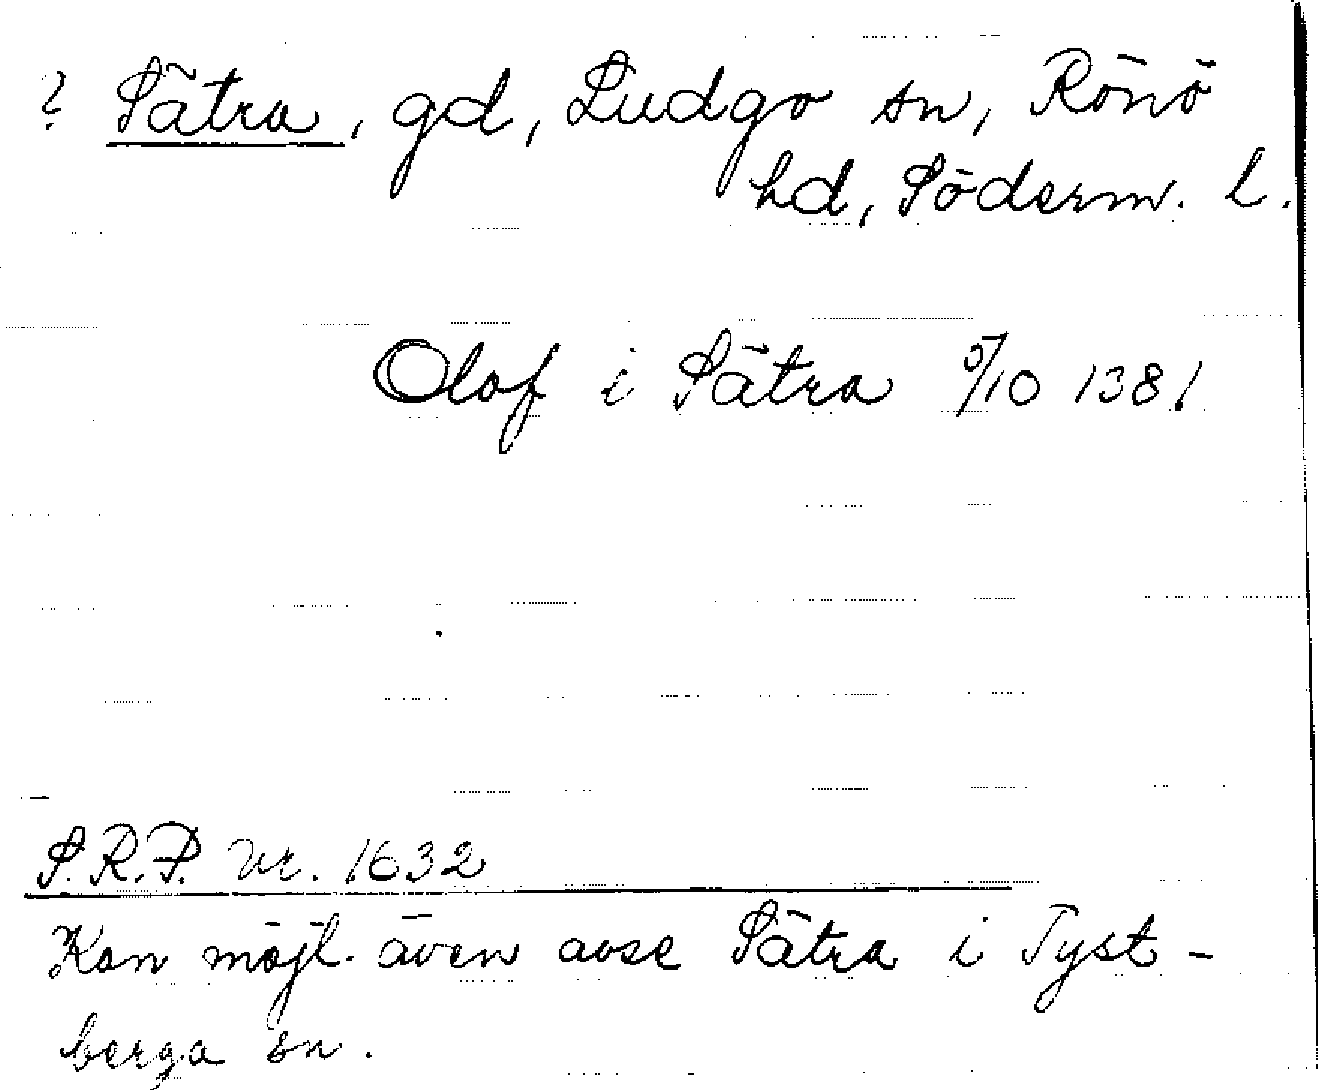 ? Sätra, gd, Ludgo sn, Rönö
hd, Söderm. l.
Olof i Sätra 5/10 1381
S.R.P. nr. 1632
Kan möjl. även avse Sätra i Tyst-
berga sn.